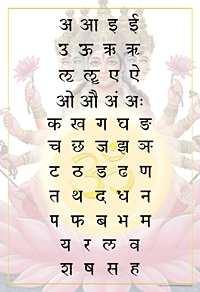 अ आ इ ई
उ ऊ ऋ ॠ
ऌ ॡ ए ऐ
ओ औ अं अः
क ख ग घ ङ
च छ ज झ ञ
ट ठ ड ढ ण
त थ द ध न
प फ ब भ म
य र ल व
श ष स ह